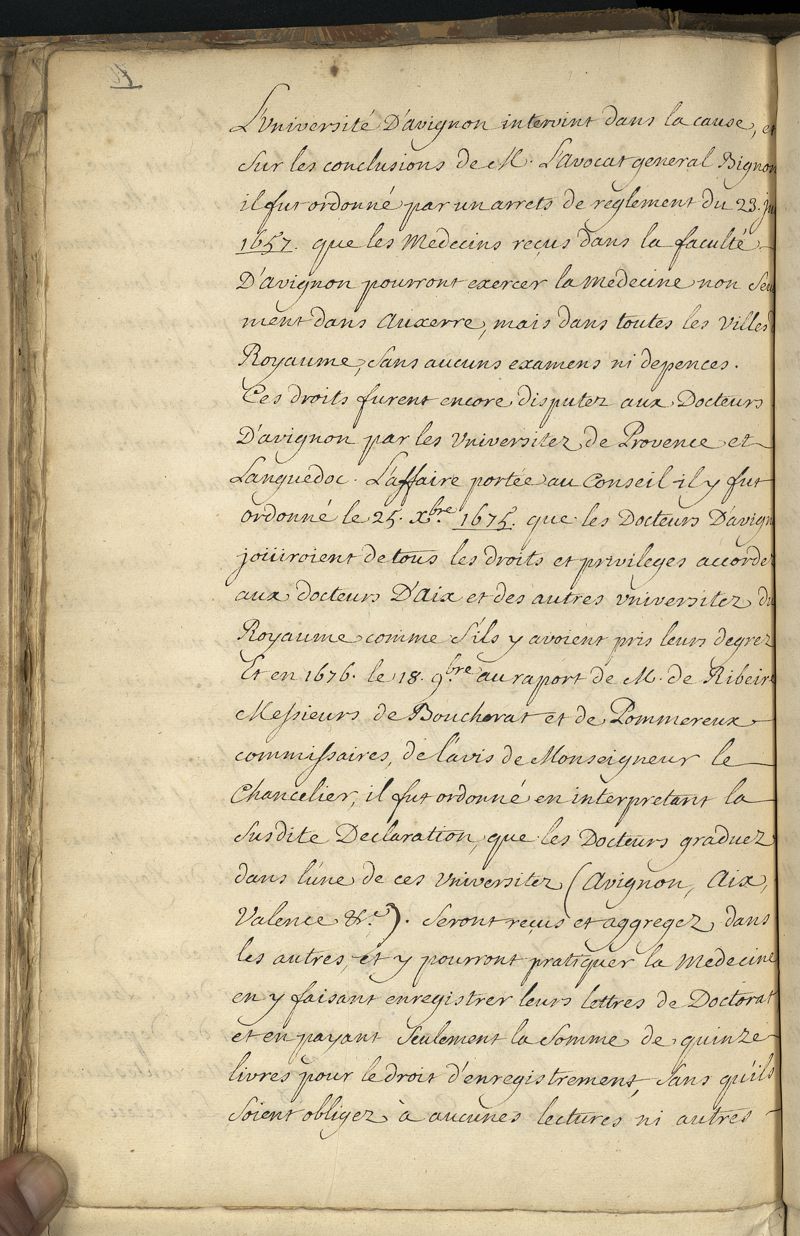 L'Université D'avignon intervint dans la cause, et
Sur les conclusions de M. L'Avocat general Bignon
il fut ordonné par un arrets de reglement du 23. ju
1657. que les Medecins reçus dans la faculté
D'avignon pourront exercer la medecine non Seu
ment dans Auxerre, mais dans toutes les Villes
Royaume, Sans aucuns examens ni depences.
Ces droits furent encore disputez aux Docteurs
D'avignon par les Universitez de Provence et
Languedoc. L'affaire portée au Conseil il y fut
ordonné le 25. Xbre. 1675. que les Docteurs D'avign
joüiroient de tous les droits et privileges accordez
aux docteurs D'Aix et des autres Universitez du
Royaume comme S'ils y avoient pris leurs degrez
Et en 1676. le 18. 9bre au raport de M. de Ribeire
Messieurs de Boucherat et de Pommereux
commissaires, de l'avis de Monseigneur le
Chancelier, il fut ordonné en interpretant la
Susdite Declaration, que les Docteurs graduez
dans l'une de ces Universitez (Avignon, Aix,
Valence &c.). Seront reçus et aggregez dans
les autres, et y pourront pratiquer la Medecine
en y faisant enregistrer leurs lettres de Doctorat
et en payant Seulement la Somme de quinze
livres pour le droit d'enregistrement, Sans qu'ils
Soient obligez à aucunes lectures ni autres